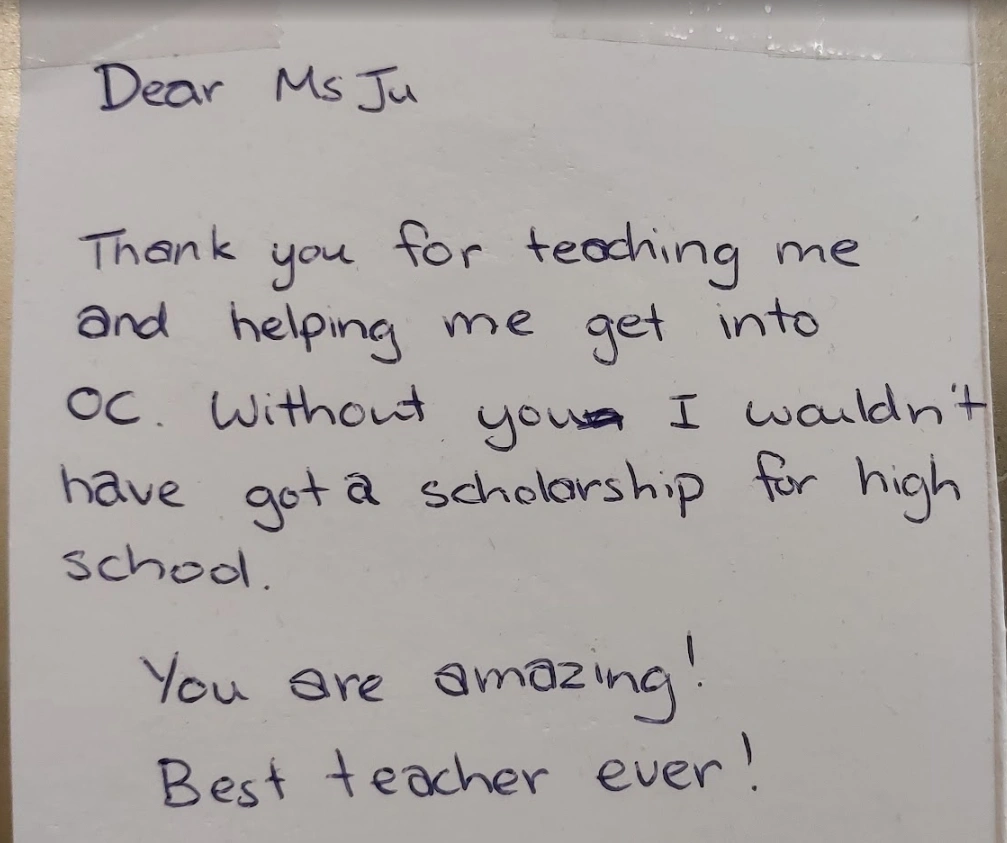 Dear Ms Ju
Thank you for teaching me
and helping me get into
OC. Without you I wouldn't
have got a scholarship for high
school.
You are amazing!
Best teacher ever!